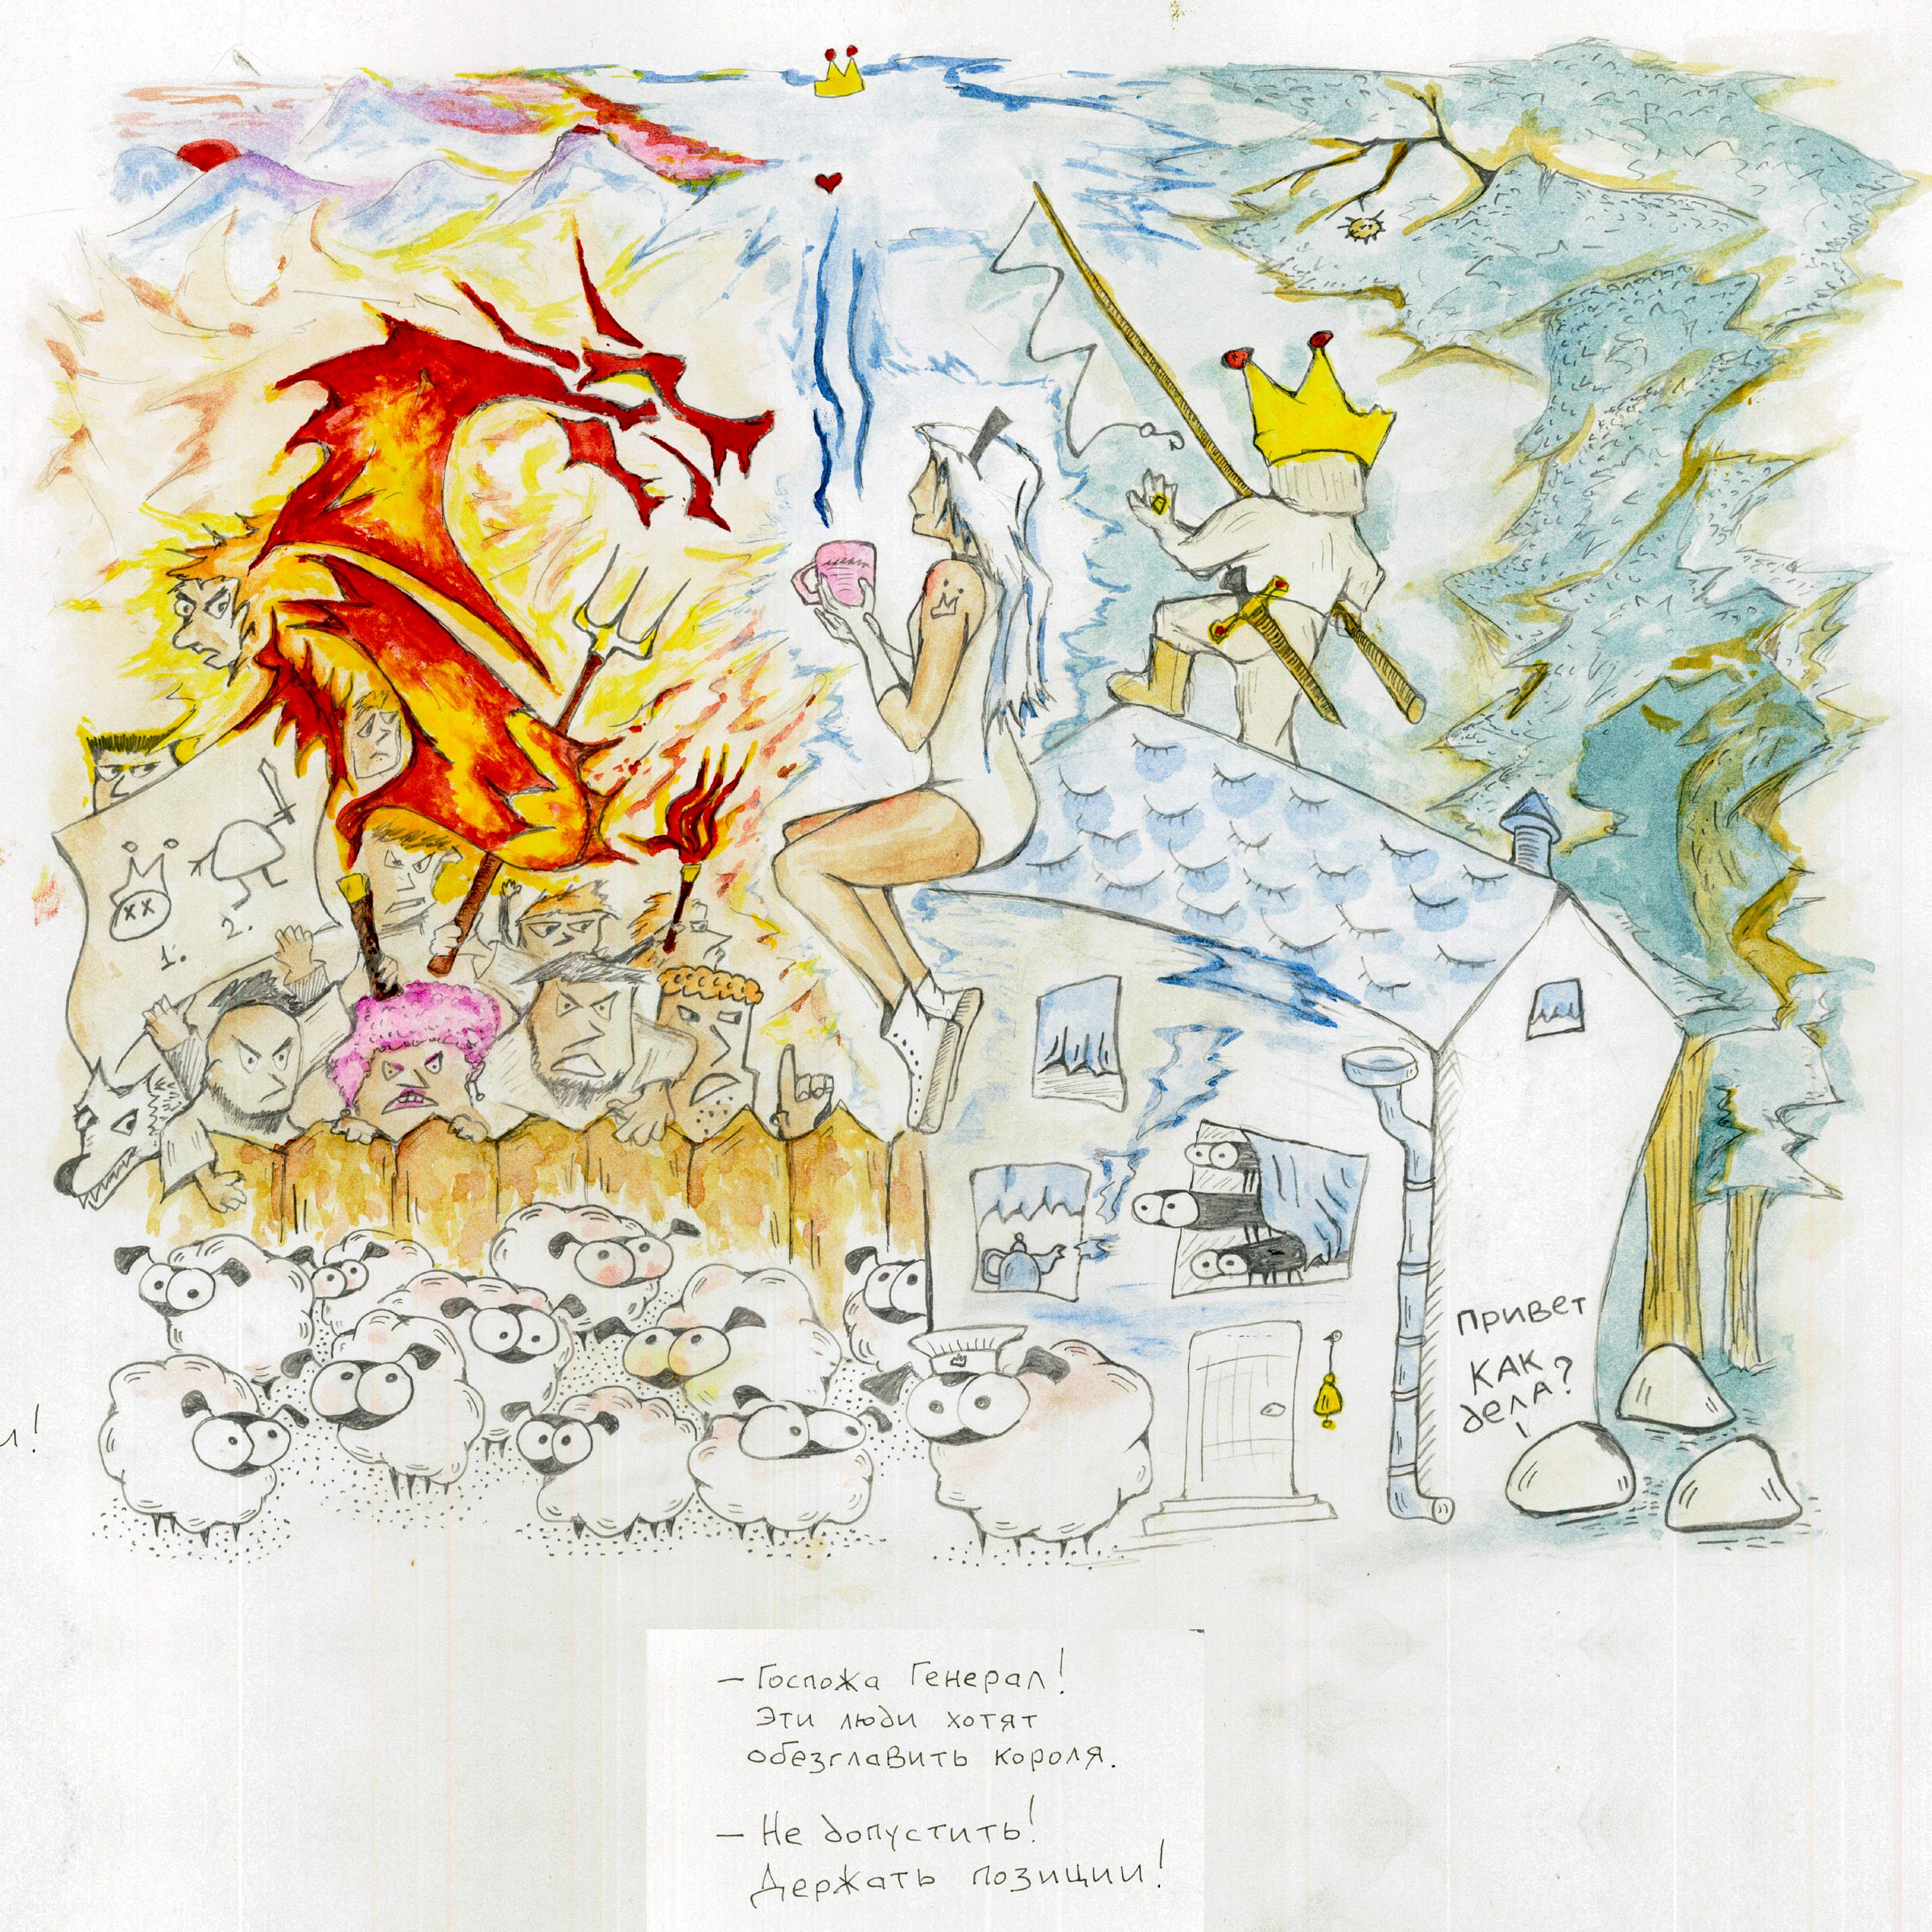 1.
2.
привет
как
дела?
– Госпожа Генерал!
Эти люди хотят
обезглавить короля.
– Не допустить!
Держать позиции!